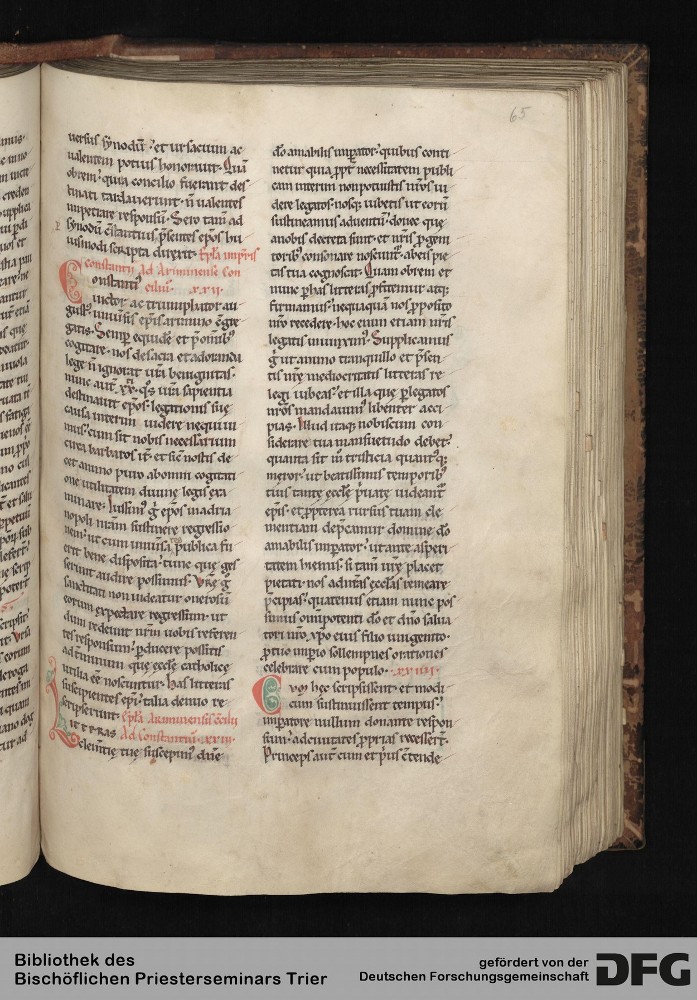 65
uersus synodū ; et ursacium ac
ualentem potius honorauit. Quā
obrem quia concilio fuerant des
tinati tardauerunt. n̄ ualentes
impetrare responsū. Sero tam̄ ad
synodū cstantius p̄sentes ep̄os hu
iusmodi scripta direxit. Ep̄la imp̄ris
constantii ad Ariminense con
onstanti᷒ cilium. xxii.
uictor ac triumphator au
gust᷒ uniu͛sis ep̄is arimino ɔ̄gre
gatis. Semp̲ equidē et p̄ om̄ib᷒
cogitare . nos de sacra et adoranda
lege n̄ ignorat ur̄a benignitas.
nunc aut̄ . xx. q͛s ur̄a sapientia
destinauit ep̄os . legationis suę
causa interim uidere nequiui
mus . cum sit nobis necessarium
circa barbaros it͛ . et sic̄ nostis de
cet animo puro ab omni cogitati
one utilitatem diuinę legis exa
minare. Iussim᷒ g̊ ep̄os in adria
nopoli nr̄am sustinere regressio
nem . ut cum uniu͛sa res publica fu
erit bene disposita . tunc quę ges
serint audire possimus. Vr̄ę g̊
sanctitati non uideatur onerosū
eorum expectare regressum . ut
dum redeunt nr̄m uobis referen
tes responsum . p̲ducere possitis
ad t͛minum quę ęcclę catholicę
utilia eē noscuntur. Has litteras
suscipientes ep̄i . talia denuo re
scripserunt. Ep̄la Ariminensis ɔ̄cilii
itteras ad Constantiū. xxiii.
clemētię tuę suscepim᷒ dn̄e
dō amabilis imp̲ator . quib͛us conti
netur quia p̲pt͛ necessitatem publi
cam interim non potuistis nr̄os ui
dere legatos . nosq; iubetis ut eorū
sustineamus aduentū . donec que
a nobis decreta sunt . et nr̄is p̲geni
torib᷒ consonare noscunt͛ . ab eis pie
tas tua cognoscat. Quam obrem et
nunc p̲ has litteras p̲fitemur atq;
firmamus . nequaquā nos p̲posito
nr̄o recedere . hoc enim etiam nr̄is
legatis iniunxim᷒. Supplicamus
g̊ ut animo tranquillo et p̄sen
tis nr̄ę mediocritatis litteras re
legi iubeas . et illa quę p̲ legatos
nr̄os mandauim᷒ libenter acci
pias. Illud itaq; nobiscum con
siderare tua mansuetudo debet .
quanta sit m̊ tristicia quant᷒q;
meror . ut beatissimis temporib᷒
tuis tantę ęcclę p̄uatę uideant͛
ep̄is . et p̲pterea rursus tuam cle
mentiam dep̄camur domine dō
amabilis imp̲ator . ut ante asperi
tatem hiemis si tam̄ ur̄ę placet
pietati . nos ad nr̄as ęcclas remeare
p̄cipias . quatenus etiam nunc pos
simus omnipotenti dō et dn̄o salua
tori nr̄o . xp̄o eius filio unigenito .
p̲ tuo imp̲io sollempnes orationes
celebrare cum populo. xxiiii.
Cum hęc scripsissent . et modi
cum sustinuissent tempus .
imp̲atore nullum donante respon
sum . ad ciuitates p̲prias recessert̄.
Princeps aut̄ cum et p̄us ɔ̄tende
Bibliothek des
Bischöflichen Priesterseminars Trier
gefördert von der
Deutschen Forschungsgemeinschaft
DFG